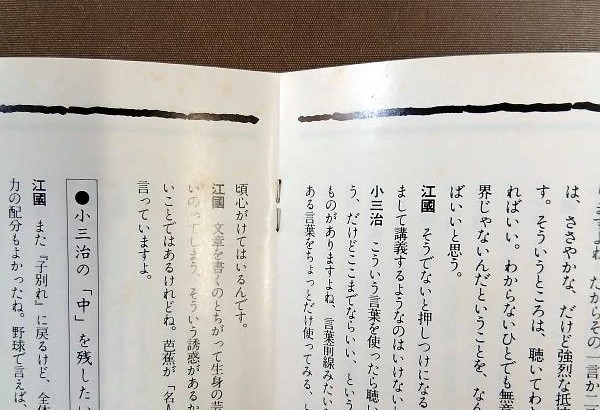 りますよね。だからその一言か二
は、ささやかな、だけど強烈な抵
す。そういうところは、聴いてわ
ればいい。わからないひとでも無意
界じゃないんだということを、なん
ばいいと思う。
江國　そうでないと押しつけになる
まして講義するようなのはいけない
小三治　こういう言葉を使ったら聴い
う、だけどここまでならいい、という
ものがありますよね、言葉前線みたいな
ある言葉をちょっとだけ使ってみる、と
頃心がけてはいるんです。
江國　文章を書くのとちがって生身の芸
いのってしまう、そういう誘惑があるか
いことではあるけれどね。芭蕉が「名人
言っていますよ。
●小三治の「中」を残したい
江國　また『子別れ』に戻るけど、全体
力の配分もよかったね。野球で言えば、